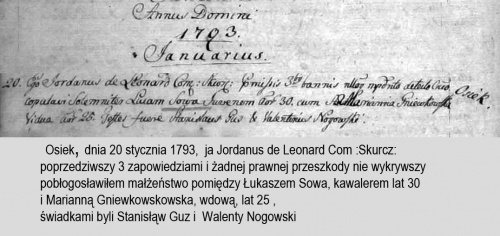 Annus Domini
1793.
Januarius.
20. Ego Jordanus de Leonard Com: Skorz: pmissis 3bus bannis
copulavi Solemniter Lucam Sowa Juvenem aor 30. cum Marianna Gniewkowska Osiek.
Vidua aor 25. Testes fuere Stanislaus Gus & Valentinus Nogowski.
Osiek, dnia 20 stycznia 1793, ja Jordanus de Leonard Com :Skurcz:
poprzedziwszy 3 zapowiedziami i żadnej prawnej przeszkody nie wykrywszy
pobłogosławiłem małżeństwo pomiędzy Łukaszem Sowa, kawalerem lat 30
i Marianną Gniewkowskowska, wdową, lat 25 ,
świadkami byli Stanisłąw Guz i Walenty Nogowski